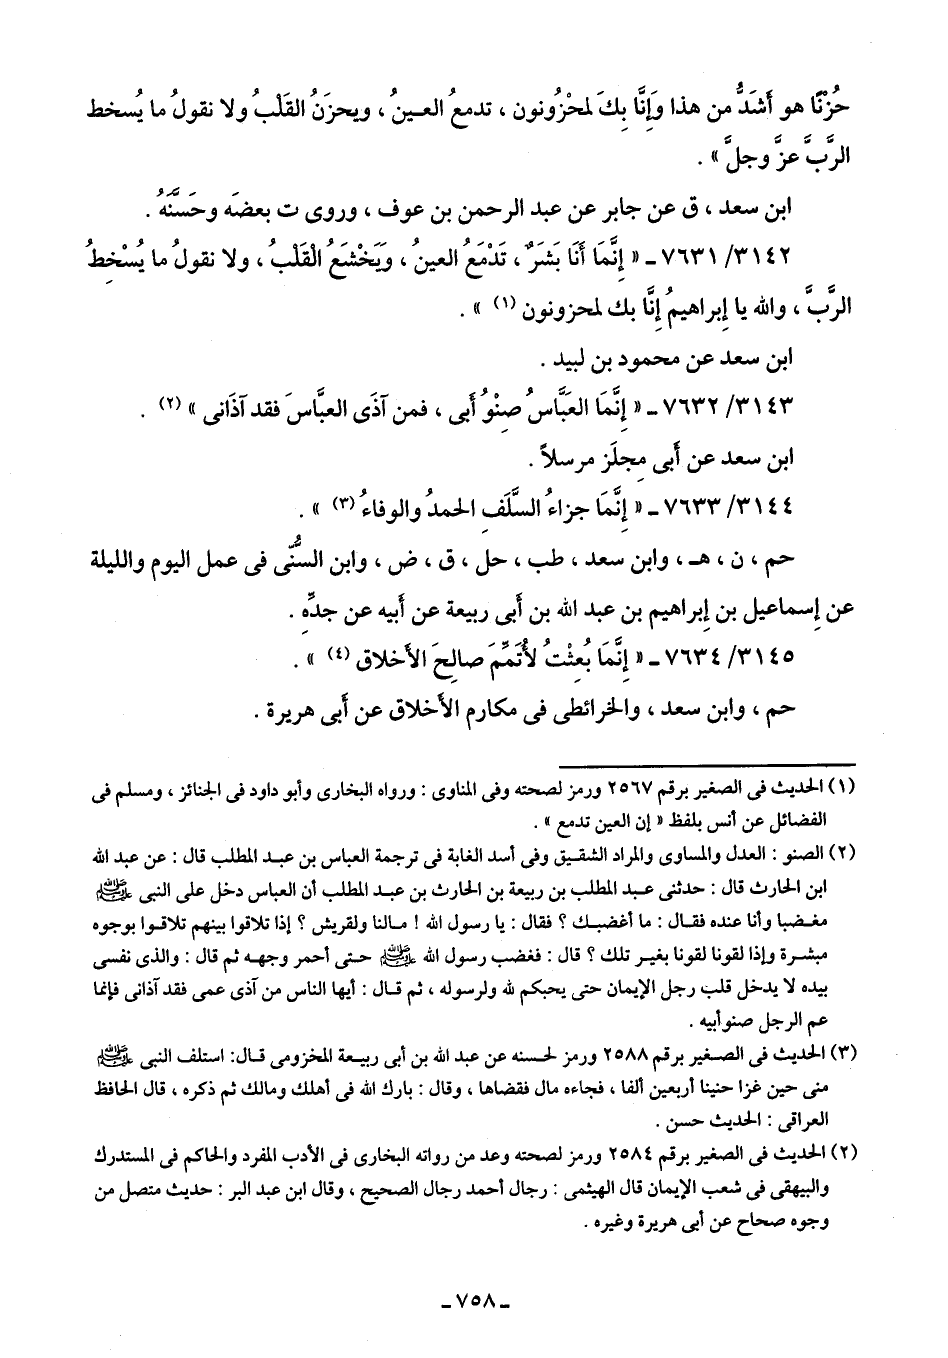 حُزْنًا هو أَشَدُّ من هذا وَإِنَّا بِكَ لمحْزُونون ، تدمعُ العـينُ ، ويحزَنُ القَلْبُ ولا نقولُ ما يُسخط
الرَّبَّ عزَّ وجلَّ » .
ابن سعد ، ق عن جابر عن عبد الرحمن بن عوف ، وروى ت بعضَه وحَسَّنَهُ .
٧٦٣١/٣١٤٢ ـ « إِنَّمَا أَنَا بَشَرٌ ، تَدْمَعُ العينُ ، وَيَخْشَعُ الْقَلْبُ ، ولا نقولُ ما يُسْخِطُ
الرَّبَّ ، والله يا إِبراهيمُ إِنَّا بك لمحزونون (١) » .
ابن سعد عن محمود بن لبيد .
٧٦٣٢/٣١٤٣ ـ « إِنَّمَا العَبَّاسُ صِنْوُ أَبى ، فمن آذَى العبَّاسَ فقد آذَانى » (٢) .
ابن سعد عن أَبى مِجلَز مرسلاً .
٧٦٣٣/٣١٤٤ ـ « إِنَّمَا جزاءُ السَّلَفِ الحمدُ والوفاءُ (٣) » .
حم ، ن ، هـ ، وابن سعد ، طب ، حل ، ق ، ض ، وابن السُّنِّى فى عمل اليوم والليلة
عن إِسماعيل بن إِبراهيم بن عبد الله بن أَبى ربيعة عن أَبيه عن جدِّه .
٧٦٣٤/٣١٤٥ ـ « إِنَّمَا بُعِثْتُ لأُتَمِّمَ صالِحَ الأَخلاق (٤) » .
حم ، وابن سعد ، والخرائطى فى مكارم الأَخلاق عن أَبى هريرة .
(١) الحديث فى الصغير برقم ٢٥٦٧ ورمز لصحته وفى المناوى : ورواه البخارى وأبو داود فى الجنائز ، ومسلم فى
الفضائل عن أنس بلفظ « إن العين تدمع » .
(٢) الصنو : العدل والمساوى والمراد الشقيق وفى أسد الغابة فى ترجمة العباس بن عبـد المطلب قال : عن عبد الله
ابن الحارث قال : حدثنى عبـد المطلب بن ربيعة بن الحارث بن عبـد المطلب أن العباس دخل على النبى ﷺ
مغـضبا وأنا عنده فقـال : ما أغضبـك ؟ فقال : يا رسول الله ! مـالنا ولقريش ؟ إذا تلاقوا بينهم تلاقـوا بوجوه
مبشـرة وإذا لقونا لقونا بغيـر تلك ؟ قال : فغضب رسول الله ﷺ حـتى أحمر وجهـه ثم قال : والذى نفسى
بيده لا يدخل قلب رجل الإيمان حتى يحبكم لله ولرسوله ، ثم قـال : أيها الناس من آذى عمى فقد آذانى فإنما
عم الرجل صنو أبيه .
(٣) الحديث فى الصـغير برقم ٢٥٨٨ ورمز لحسنه عن عبد الله بن أبى ربيعة المخزومى قـال: استلف النبى ﷺ
منى حين غزا حنينا أربعين ألفا ، فجاءه مال فقضاها ، وقال : بارك الله فى أهلك ومالك ثم ذكره ، قال الحافظ
العراقى : الحديث حسن .
(٢) الحديث فى الصغير برقم ٢٥٨٤ ورمز لصحته وعد من رواته البخارى فى الأدب المفرد والحاكم فى المستدرك
والبيهقى فى شعب الإيمان قال الهيثمى : رجال أحمد رجال الصحيح ، وقال ابن عبد البر : حديث متصل من
وجوه صحاح عن أبى هريرة وغيره .
ـ ٧٥٨ ـ